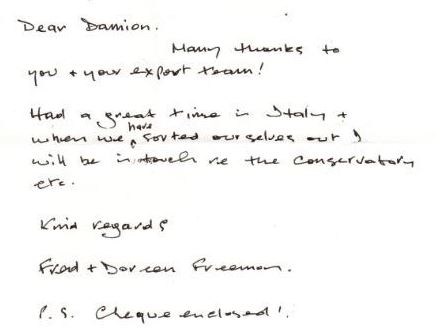 Dear Damion.
Many thanks to
you + your expert team!
Had a great time in Italy +
when we have sorted ourselves out I
will be in touch re the Conservatory
etc.
Kind regards
Fred + Doreen Freeman.
P.S. Cheque enclosed!